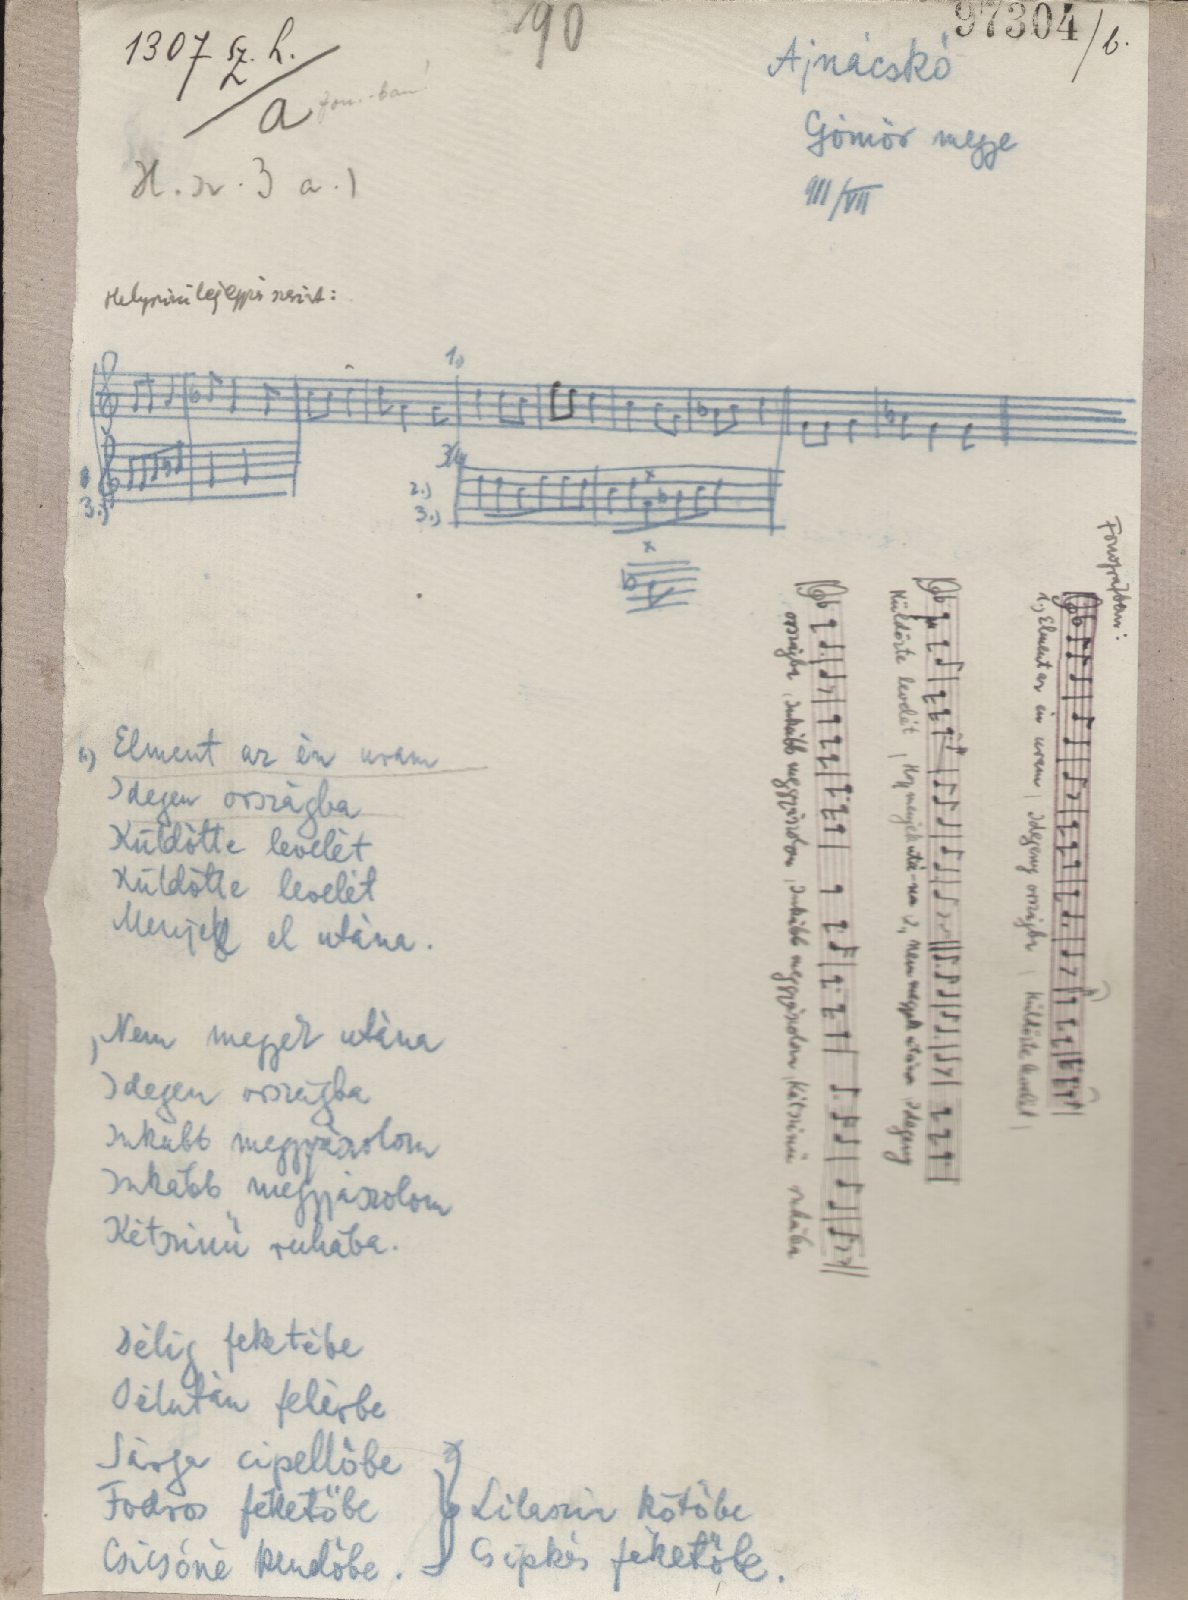 1307 sz. h.
a
190
97304/b.
Ajnácskő
Gömör megye
911/VII
H. sz. 3 a.)
Helyszini lejegyzés szerint:
1.)
3/4
2.)
3.)
3.)
Fonográfban:
1., Elment az én uram | Idegeny országba | Küldötte levelét |
Küldötte levelét | Hogy menjek utá-na 2, Nem megyek utána Idegeny
országba, Inkább meggyászolom, Inkább meggyászolom, Kétszinü ruhába
1.) Elment az én uram
Idegen országba
Küldötte levelét
Küldötte levelét
Menjek el utána.
Nem megyek utána
Idegen országba
Inkább meggyászolom
Inkább meggyászolom
Kétszinü ruhába.
Délig feketébe
Délután fehérbe
Sárga cipellőbe
Fodros féketőbe
Csicsóné kendőbe.
Lilaszin kötőbe
Csipkés féketőbe.